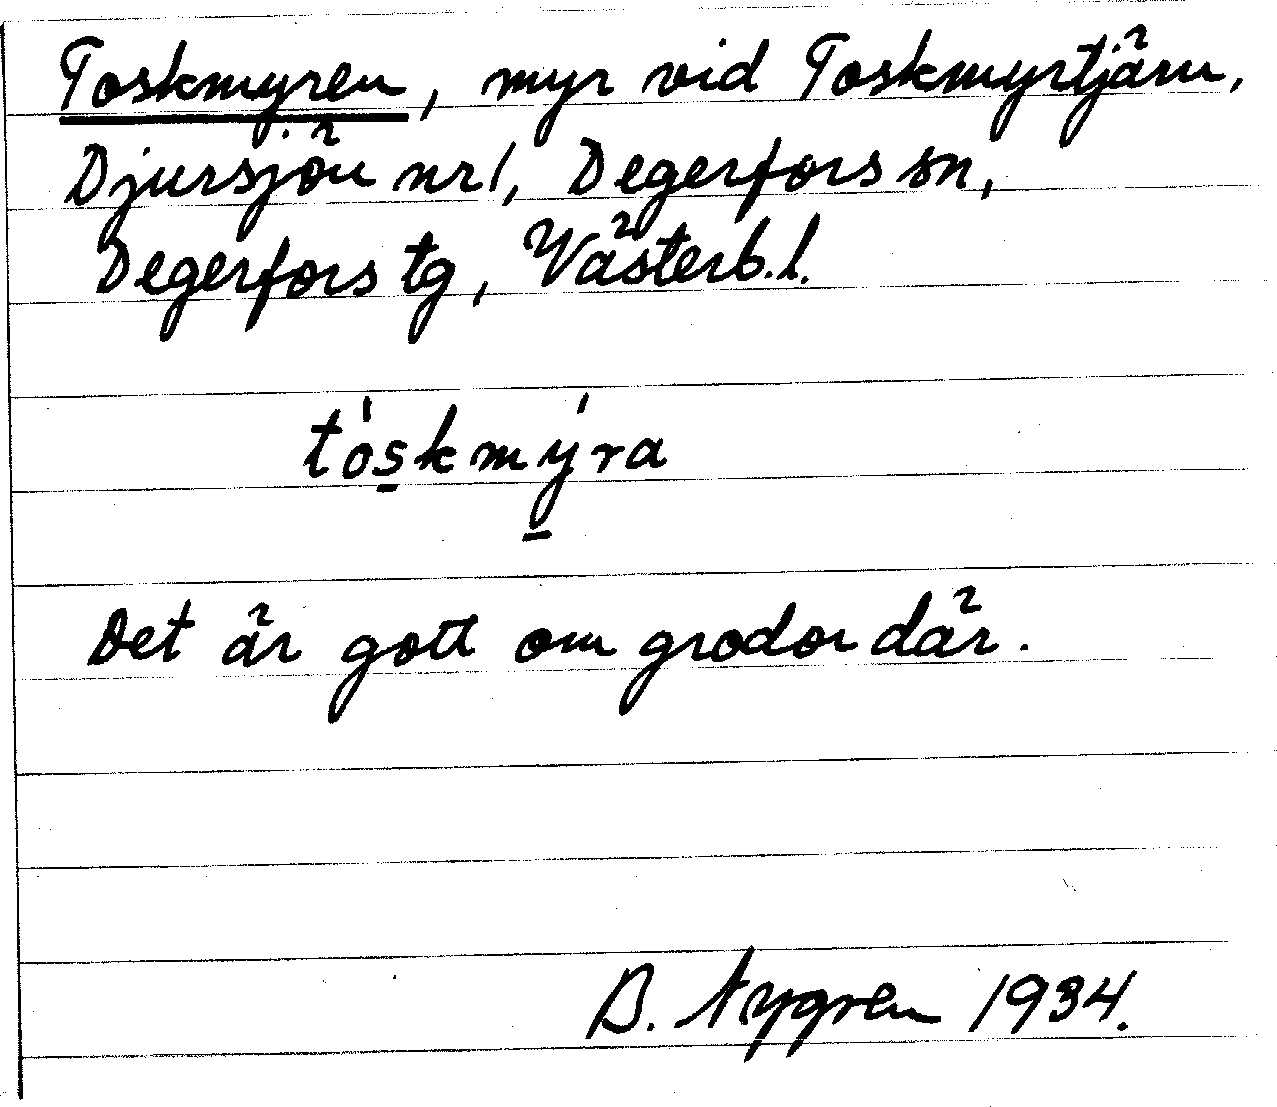 Toskmyren, myr vid Toskmyrtjärn,
Djursjön nr 1, Degerfors sn,
Degerfors tg, Västerb. l.
tòs̲kmý̲ra
Det är gott om grodor där.
B. Nygren 1934.